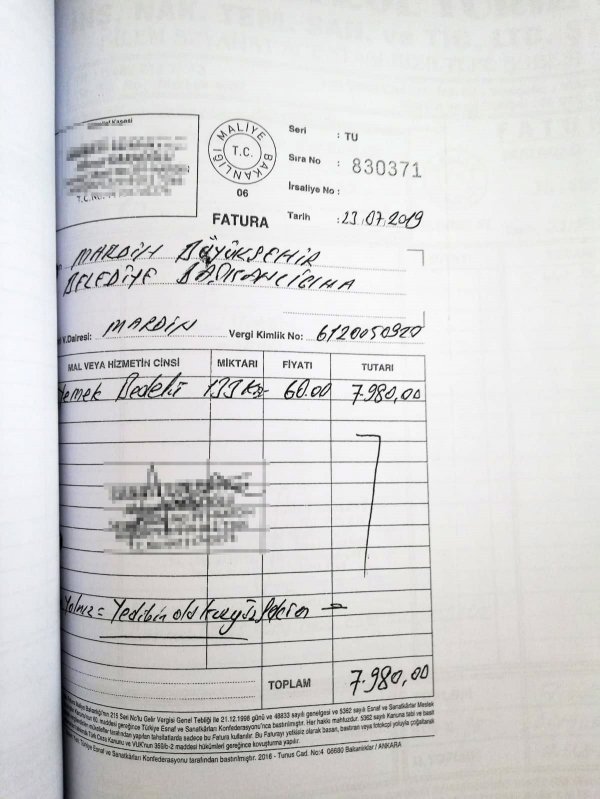 Seri : TU
MALİYE BAKANLIĞI
T.C.
Sıra No : 830371
06
İrsaliye No :
FATURA
Tarih : 23.07.2019
MARDİN BÜYÜKSEHİR
BELEDİYE BAŞKANLIĞINA
V.Dairesi: MARDİN Vergi Kimlik No: 6120050920
MAL VEYA HİZMETİN CİNSİ MİKTARI FİYATI TUTARI
Yemek Bedeli 133 60.00 7.980,00
Yalnız = Yedibin
TOPLAM 7.980,00
215 Seri No'lu Gelir Vergisi Genel Tebliği ile 21.12.1998 günü ve 48833 sayılı genelgesi ve 5362 sayılı Esnaf ve Sanatkârlar Meslek
Kanununun 60. maddesi gereğince Türkiye Esnaf ve Sanatkârları Konfederasyonu'nca bastırılmıştır. Her hakkı mahfuzdur. 5362 sayılı Kanuna tabi ve basit
tarafından yapılan tahsilatlarda sadece bu Fatura kullanılır. Bu Faturayı yetkisiz olarak basan, bastıran veya fotokopi yoluyla çoğaltanlar
Türk Ceza Kanunu ve VUK'nun 359/b-2 maddesi hükümleri gereğince kovuşturma yapılır.
Türkiye Esnaf ve Sanatkârları Konfederasyonu tarafından bastırılmıştır. 2016 - Tunus Cad. No:4 06680 Bakanlıklar / ANKARA